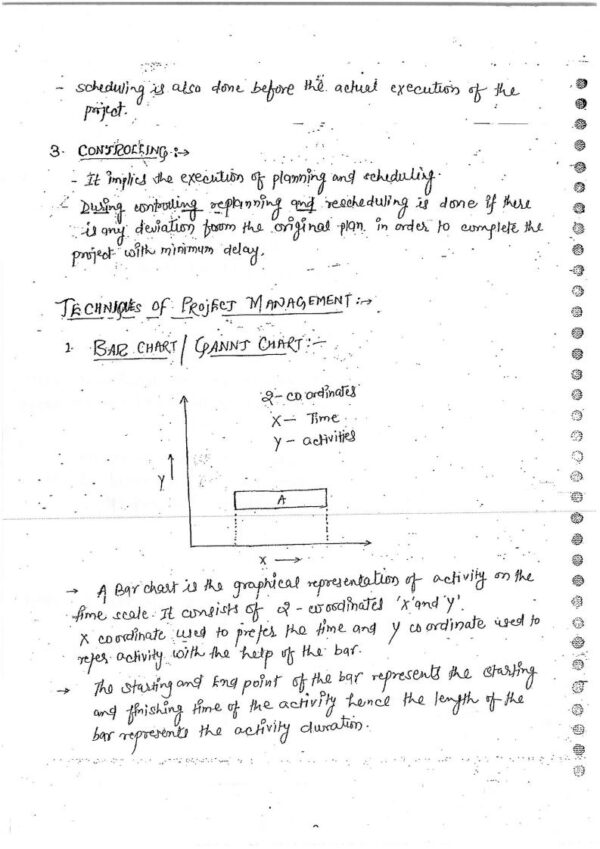 - scheduling is also done before the actual execution of the
project.
3. CONTROLLING :→
- It implies the execution of planning and scheduling.
- During controlling replanning and rescheduling is done if there
is any deviation from the original plan in order to complete the
project with minimum delay.
TECHNIQUES OF PROJECT MANAGEMENT :→
1. BAR CHART / GANNT CHART :-
2-coordinates
X - Time
Y - activities
Y
A
X →
→ A Bar chart is the graphical representation of activity on the
time scale. It consists of 2-coordinates 'x' and 'y'.
X coordinate used to prefer the time and y coordinate used to
refer activity with the help of the bar.
→ The starting and End point of the bar represents the starting
and finishing time of the activity hence the length of the
bar represents the activity duration.